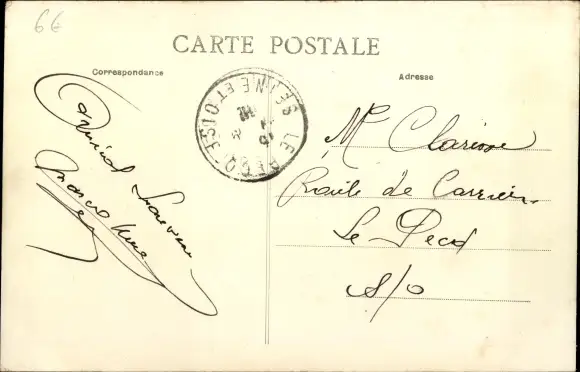 6€
CARTE POSTALE
Correspondance
Adresse
LE PECQ SEINE-ET-OISE
Amical Souvenir
Mr Clarisse
Route de Carrières
Le Pecq
S/O